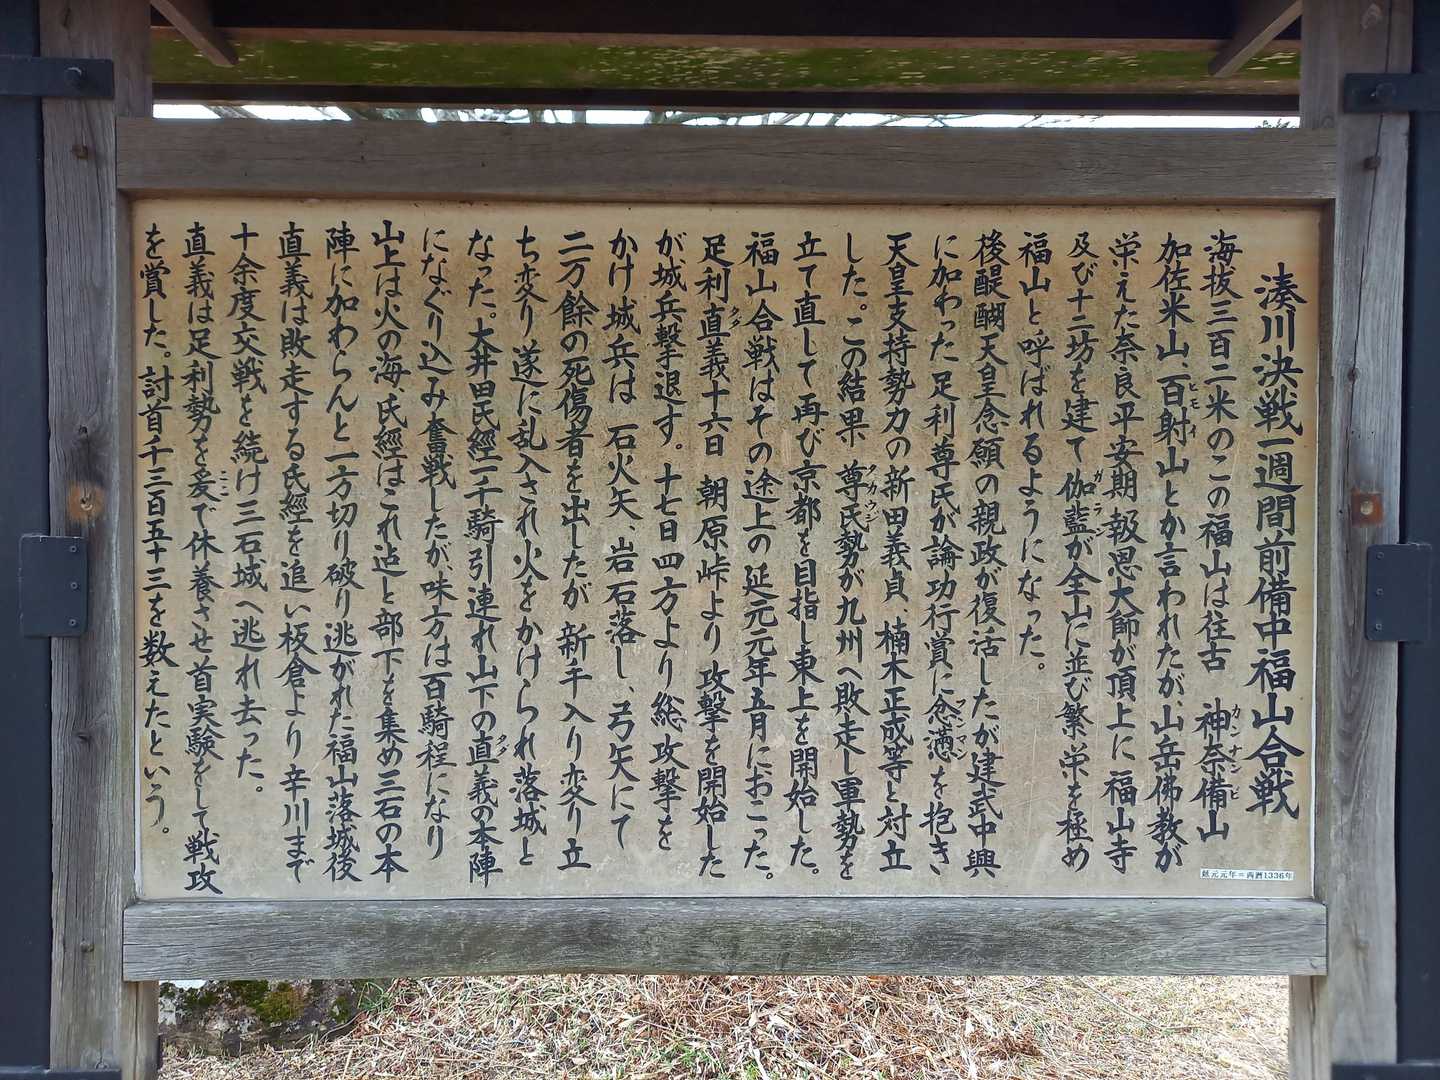 湊川決戦一週間前備中福山合戦
海抜三百二米のこの福山は往古 神奈備山
カンナンビ
加佐米山、百射山とか言われたが、山岳佛教が
ヒモイ
栄えた奈良平安期 報恩大師が頂上に福山寺
及び十二坊を建て 伽藍が全山に並び繁栄を極め
ガラン
福山と呼ばれるようになった。
後醍醐天皇念願の親政が復活したが建武中興
に加わった足利尊氏が論功行賞に忿懣を抱き
フンマン
天皇支持勢力の新田義貞、楠木正成等と対立
した。この結果 尊氏勢が九州へ敗走し軍勢を
タカウジ
立て直して再び京都を目指し東上を開始した。
福山合戦はその途上の延元元年五月におこった。
足利直義十六日 朝原峠より攻撃を開始した
タダ
が、城兵撃退す。十七日四方より総攻撃を
かけ城兵は 石火矢、岩石落し、弓矢にて
二万餘の死傷者を出したが 新手入り変り立
ち変り遂に乱入され火をかけられ落城と
なった。大井田氏經一千騎引連れ山下の直義の本陣
タダ
になぐり込み奮戦したが、味方は百騎程になり
山上は火の海、氏經はこれ迠と部下を集め三石の本
陣に加わらんと一方切り破り逃がれた福山落城後
直義は敗走する氏經を追い板倉より辛川まで
十余度交戦を続け三石城へ逃れ去った。
直義は足利勢を爰で休養させ首実験をして戦攻
ここ
を賞した。討首千三百五十三を数えたという。
延元元年=西暦1336年